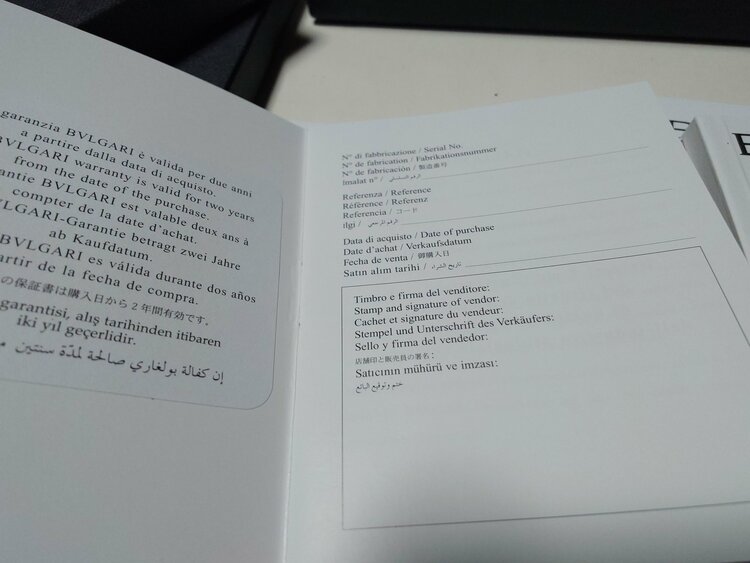 garanzia BVLGARI è valida per due anni
a partire dalla data di acquisto.
BVLGARI warranty is valid for two years
from the date of the purchase.
antie BVLGARI est valable deux ans à
compter de la date d'achat.
VLGARI-Garantie betragt zwei Jahre
ab Kaufdatum.
BVLGARI es válida durante dos años
partir de la fecha de compra.
の保証書は購入日から2年間有効です。
garantisi, alış tarihinden itibaren
iki yıl geçerlidir.
إن كفالة بولغاري صالحة لمدّة سنتين
N° di fabbricazione / Serial No.
N° de fabrication / Fabrikationsnummer
N° de fabricación / 製造番号
İmalat n° / الرقم التسلسلي
Referenza / Reference
Référence / Referenz
Referencia / コード
ilgi / الرقم المرجعي
Data di acquisto / Date of purchase
Date d'achat / Verkaufsdatum
Fecha de venta / 御購入日
Satın alım tarihi / تاريخ الشراء
Timbro e firma del venditore:
Stamp and signature of vendor:
Cachet et signature du vendeur:
Stempel und Unterschrift des Verkäufers:
Sello y firma del vendedor:
店舗印と販売員の署名:
Satıcının mühürü ve imzası:
ختم وتوقيع البائع